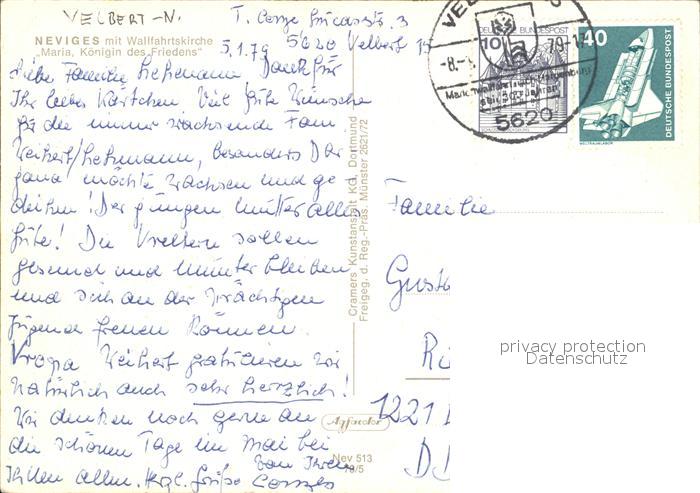 VELBERT-N.
NEVIGES mit Wallfahrtskirche
„Maria, Königin des Friedens"
5.1.79
5620 Velbert 15
Liebe Familie Dank für
Ihr liebes Kärtchen. Viel gute Wünsche
für die immer wachsende Fam
Weihert/ besonders Dar
jana möchte wachsen und ge
deihen! Der jungen Mutter alles
Gute! Die Ureltern sollen
gesund und munter bleiben
und sich an der prächtigen
Jugend freuen können.
Uropa Weihert gratulieren wir
natürlich auch sehr herzlich!
Wir denken noch gerne an
die schönen Tage im Mai bei
Ihnen allen. Herzl. Grüße von Ihren
Cramers Kunstanstalt KG, Dortmund
Freigeg. d. Reg.-Präs. Münster 2621/72
Nev 513
5620
10
DEUTSCHE BUNDESPOST
40
DEUTSCHE BUNDESPOST
WELTRAUMLABOR
Familie
1221
privacy protection
Datenschutz